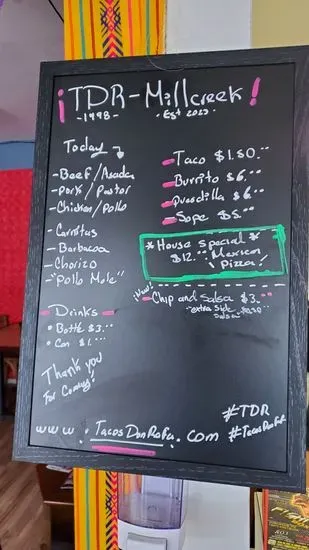 ¡TDR-Millcreek!
-1998- -Est 2023-
Today
-Beef/Asada
-Pork/Pastor
-Chicken/Pollo
-Carnitas
-Barbacoa
-Chorizo
-"Pollo Mole"
-Drinks-
•Bottle $3.00
•Can $1.00
Thank you
For Coming!
-Taco $1.50
-Burrito $6.00
-Quesadilla $6.00
-Sope $5.00
*House special*
$12.00 Mexican
Pizza!
¡New!
-Chip and Salsa $3.00
extra side
salsa
#TDR
www.TacosDonRafa.com